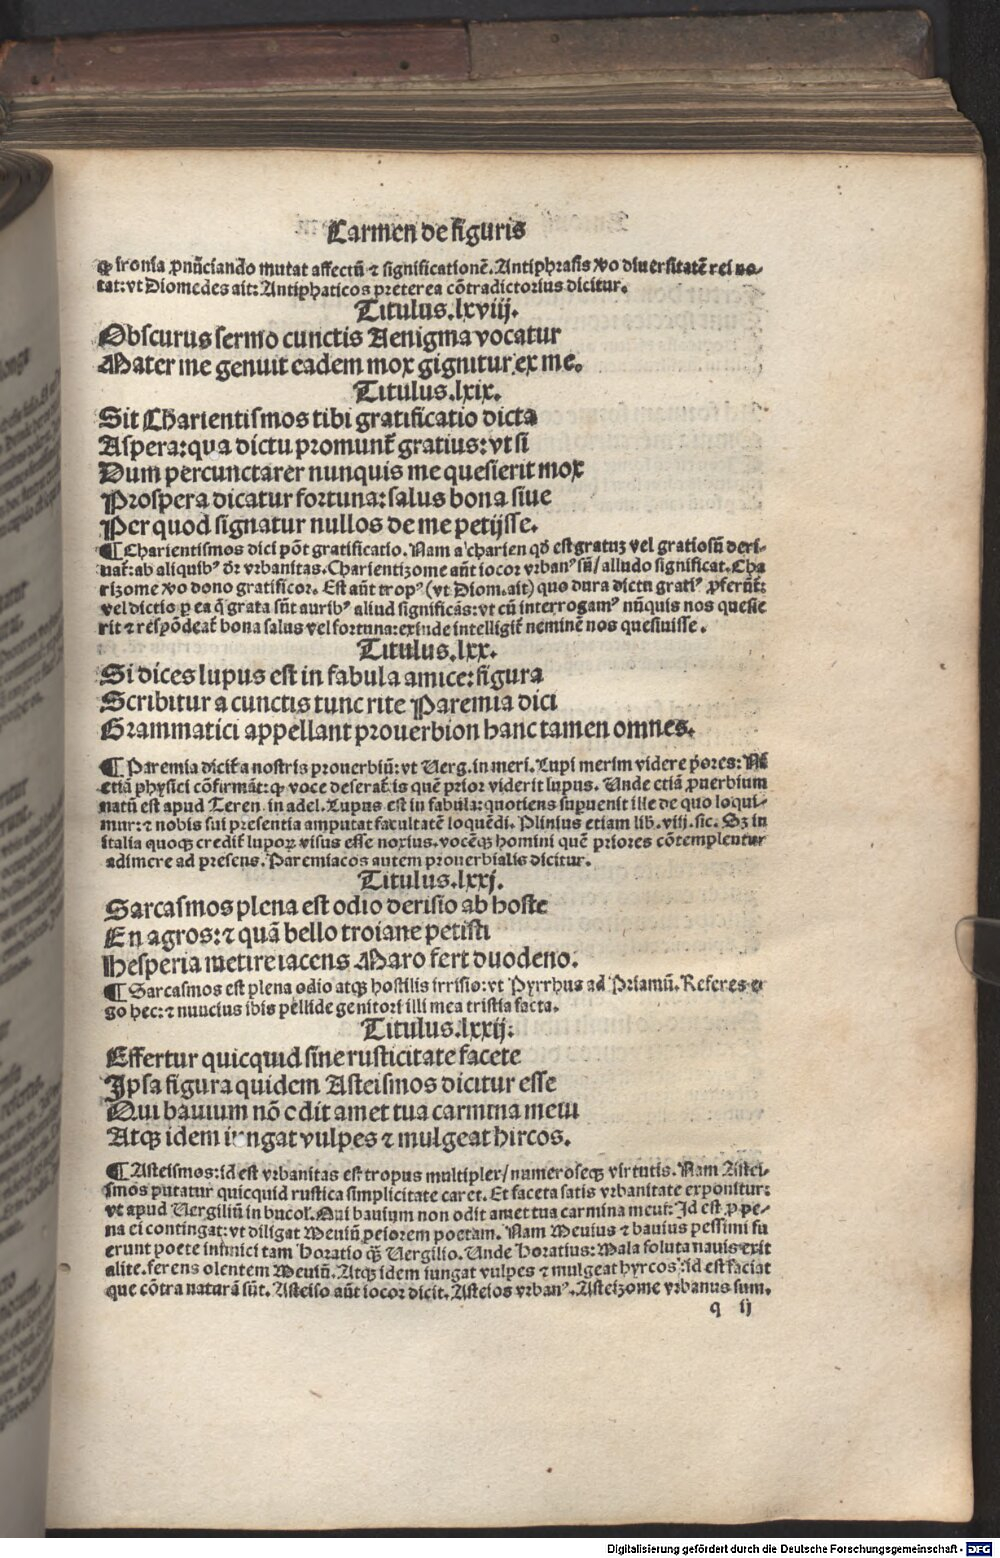 Carmen de figuris
ꝙ ironia ꝓnũciando mutat affectũ ⁊ significationẽ. Antiphrasis ꝟo diuersitatẽ rei no-
tat: vt Diomedes ait: Antiphaticos preterea cõtradictorius dicitur.
Titulus. lxviij.
Obscurus sermo cunctis Aenigma vocatur
Mater me genuit eadem mox gignitur ex me.
Titulus. lxix.
Sit Charientismos tibi gratificatio dicta
Aspera: qua dictu promunt᷑ gratius: vt si
Dum percunctarer nunquis me quesierit mox
Prospera dicatur fortuna: salus bona siue
Per quod signatur nullos de me petijsse.
¶ Charientismos dici põt gratificatio. Nam a charien qd̕ est gratuꝫ vel gratiosũ deri-
uat᷑: ab aliquibꝰ dr̃ vrbanitas. Charientizome aũt iocor vrbanꝰ sũ/ alludo significat. Cha
rizome ꝟo dono gratificor. Est aũt tropꝰ (vt Diom. ait) quo dura dictu gratiꝰ ꝓferũt᷑:
vel dictio ꝑ ea q̃ grata sũt auribꝰ aliud significãs: vt cũ interrogamꝰ nũquis nos quesie
rit ⁊ respõdeat᷑ bona salus vel fortuna: exinde intelligit᷑ neminẽ nos quesiuisse.
Titulus. lxx.
Si dices lupus est in fabula amice: figura
Scribitur a cunctis tunc rite Paremia dici
Grammatici appellant prouerbion hanc tamen omnes.
¶ Paremia dicit᷑ a nostris prouerbiũ: vt Verg. in meri. Lupi merim videre p̃ores: Nã
etiã physici cõfirmãt: ꝙ voce deserat᷑ is quẽ prior viderit lupus. Unde etiã ꝓuerbium
natũ est apud Teren. in adel. Lupus est in fabula: quotiens suꝑuenit ille de quo loqui-
mur: ⁊ nobis sui presentia amputat facultatẽ loquẽdi. Plinius etiam lib. viij. sic. Sꝫ in
italia quoqꝫ credit᷑ lupoꝝ visus esse noxius. vocẽqꝫ homini quẽ priores cõtemplentur
adimere ad presens. Paremiacos autem prouerbialis dicitur.
Titulus. lxxj.
Sarcasmos plena est odio derisio ab hoste
En agros: ⁊ quã bello troiane petisti
Hesperia metire iacens Maro fert duodeno.
¶ Sarcasmos est plena odio atqꝫ hostilis irrisio: vt Pyrrhus ad Priamũ. Referes er
go hec: ⁊ nuncius ibis pellide genitori illi mea tristia facta.
Titulus. lxxij.
Effertur quicquid sine rusticitate facete
Ipsa figura quidem Asteismos dicitur esse
Qui bauium nõ odit amet tua carmina meui
Atqꝫ idem iungat vulpes ⁊ mulgeat hircos.
¶ Asteismos: id est vrbanitas est tropus multiplex/ numeroseqꝫ virtutis. Nam Astei-
smos putatur quicquid rustica simplicitate caret. Et faceta satis vrbanitate exponitur:
vt apud Vergiliũ in bucol. Qui bauium non odit amet tua carmina meui: Id est ꝓ pe-
na ei contingat: vt diligat Meuiũ peiorem poetam. Nam Meuius ⁊ bauius pessimi fu
erunt poete inimici tam Horatio qꝫ̃ Vergilio. Unde Horatius: Mala soluta nauis exit
alite. ferens olentem Meuiũ. Atqꝫ idem iungat vulpes ⁊ mulgeat hyrcos: id est faciat
que cõtra naturã sũt. Asteiso aũt iocor dicit. Asteios vrbanꝰ. Asteizome vrbanus sum.
q ij
Digitalisierung gefördert durch die Deutsche Forschungsgemeinschaft - DFG